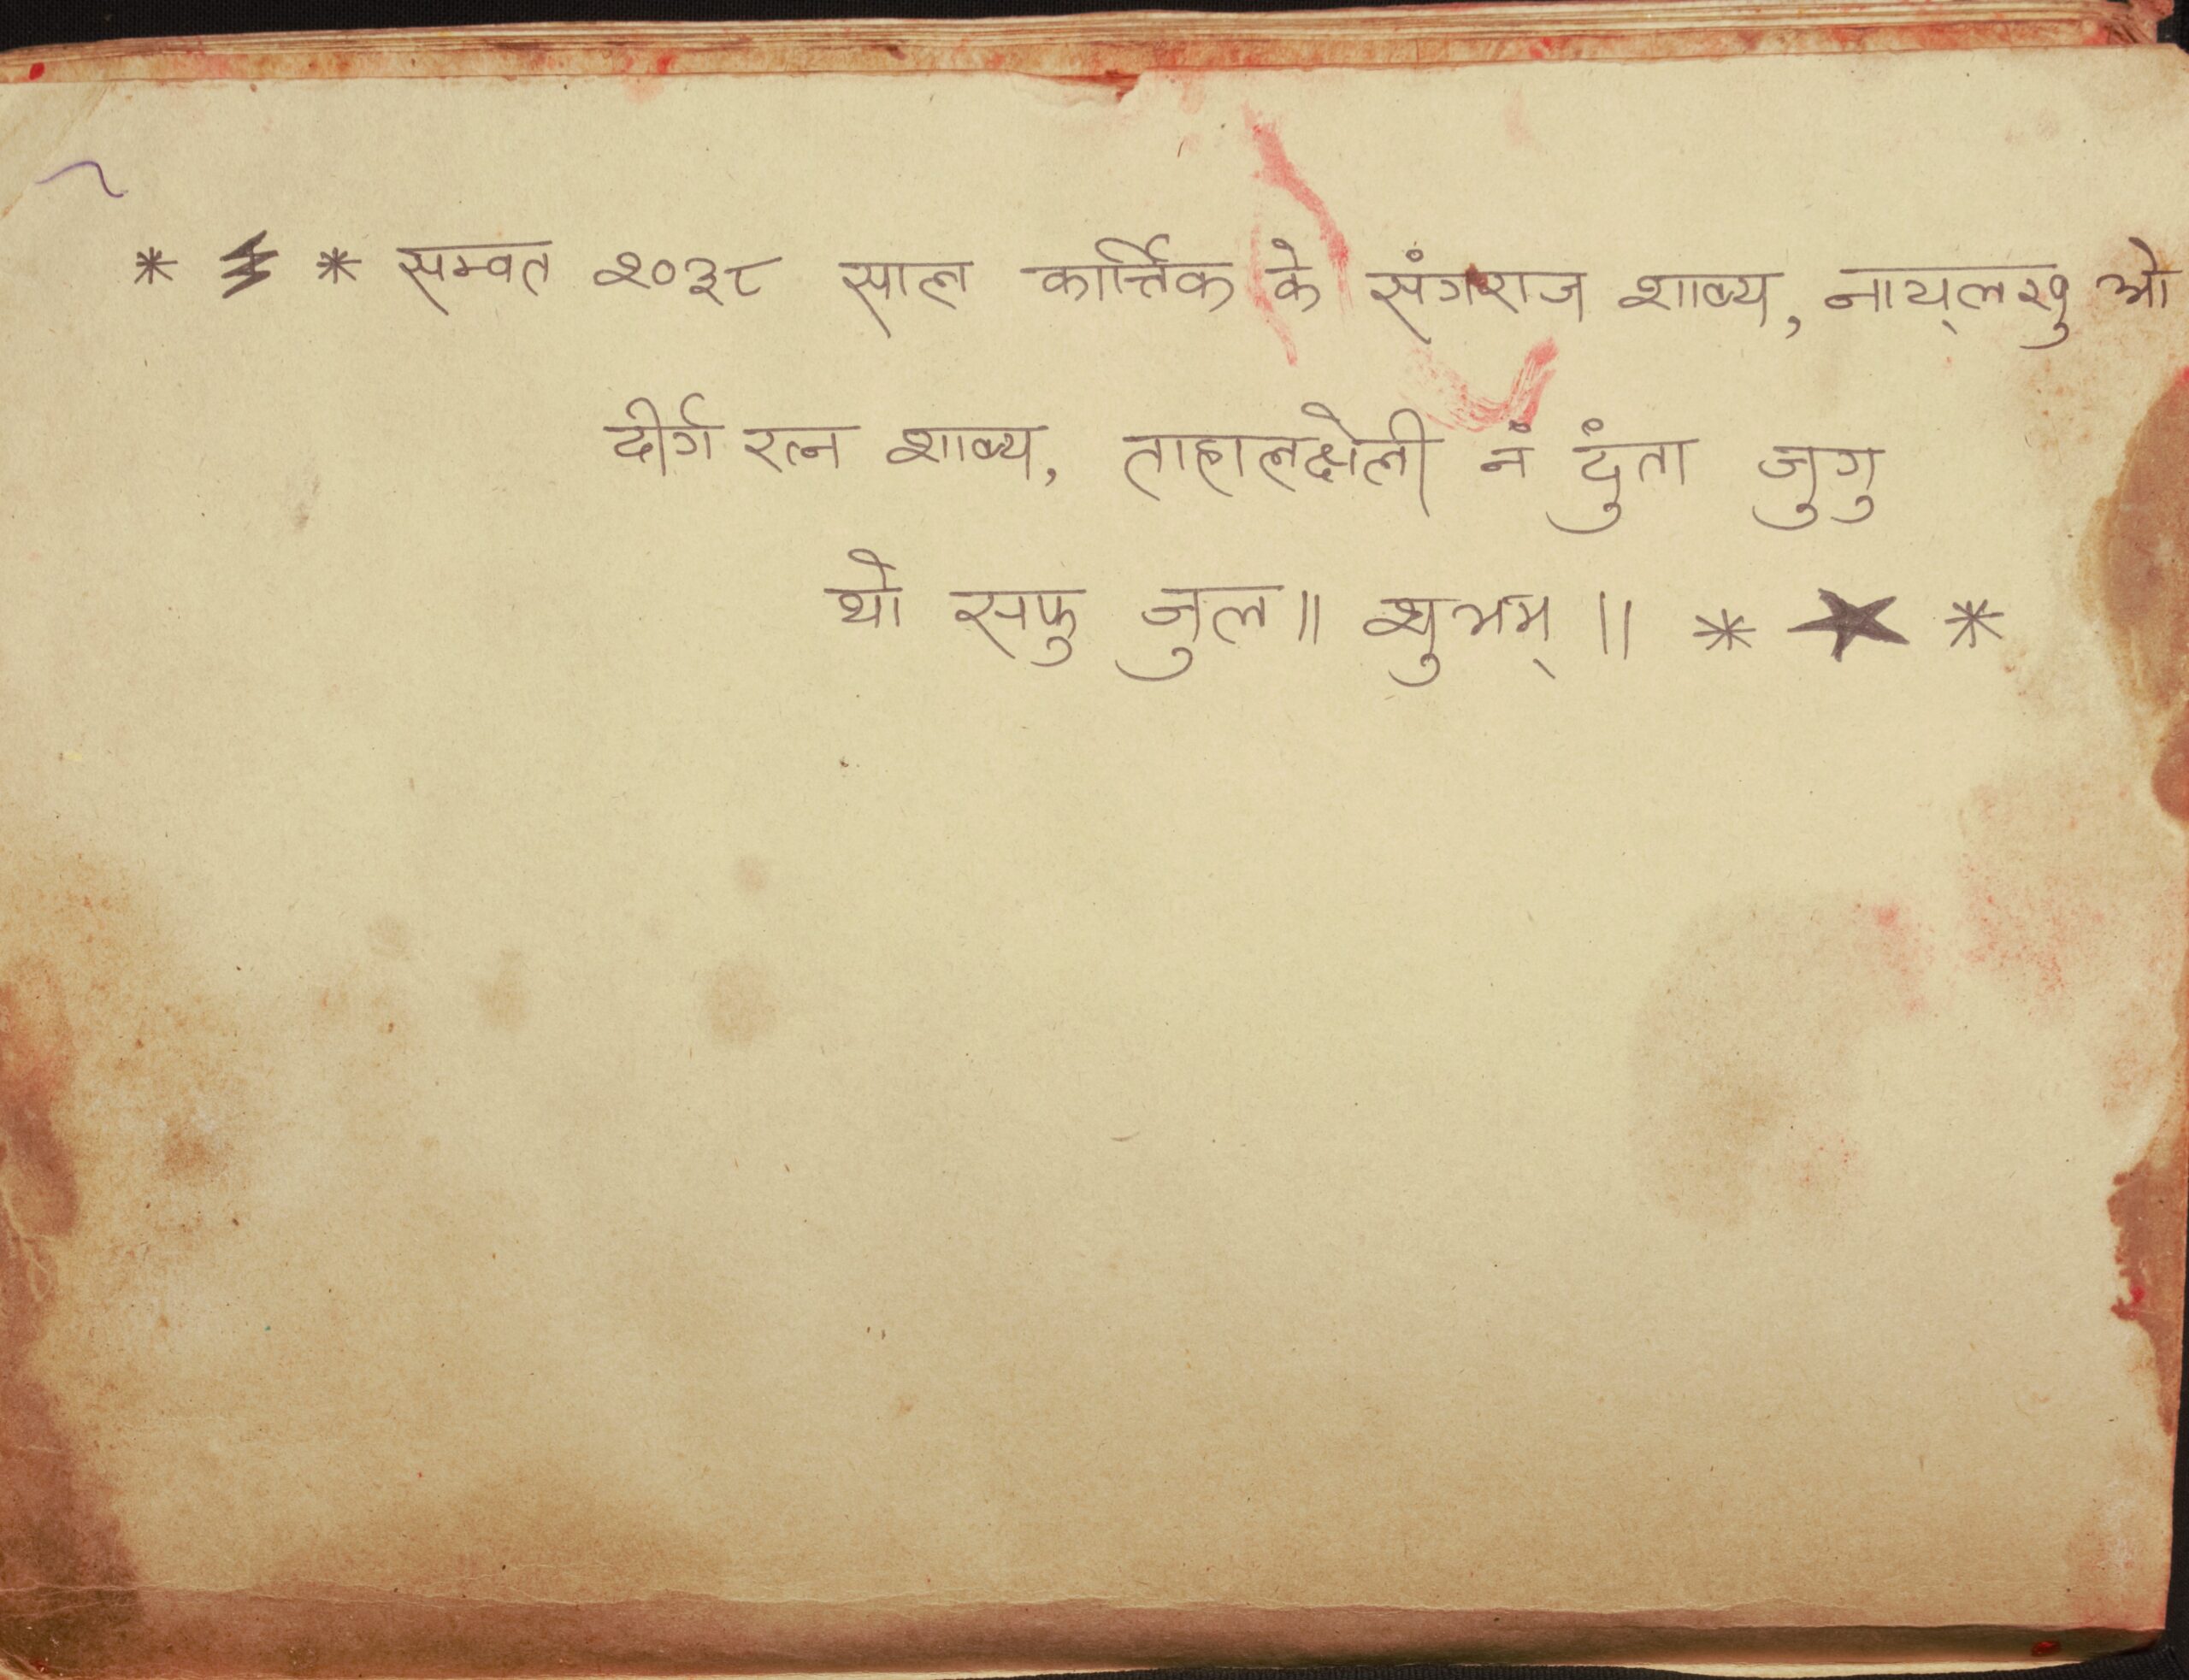 * * सम्वत २०३८ साल कार्त्तिक के संगराज शाक्य, नाय्लखु ओ
दीर्ग रत्न शाक्य, ताहालक्षेली नं दुंता जुगु
थो सफु जुल॥ शुभम् ॥ * ★ *